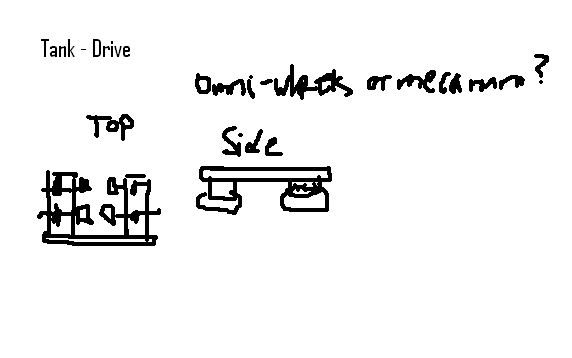 Tank - Drive
omni-wheels or mecanum?
TOP
Side